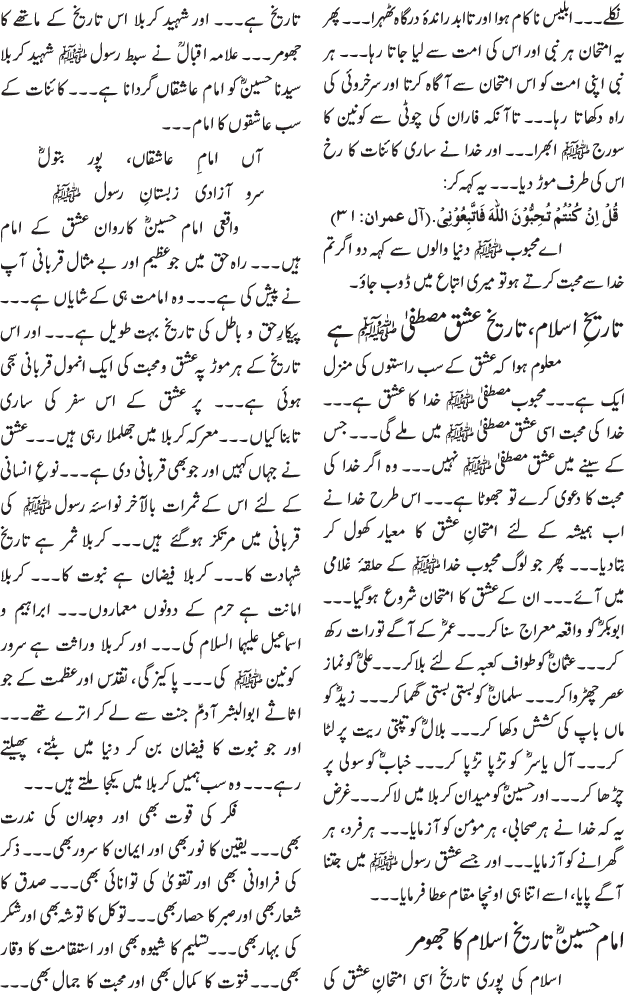 نکلے۔۔۔ ابلیس ناکام ہوا اور تا ابد راندۂ درگاہ ٹھہرا۔۔۔ پھر
یہ امتحان ہر نبی اور اس کی امت سے لیا جاتا رہا۔۔۔ ہر
نبی اپنی امت کو اس امتحان سے آگاہ کرتا اور سرخروئی کی
راہ دکھاتا رہا۔۔۔ تا آنکہ فاران کی چوٹی سے کونین کا
سورج ﷺ ابھرا۔۔۔ اور خدا نے ساری کائنات کا رخ
اس کی طرف موڑ دیا۔۔۔ یہ کہہ کر:
قُلْ اِنْ كُنْتُمْ تُحِبُّوْنَ اللهَ فَاتَّبِعُوْنِیْ. (آل عمران: ۳۱)
اے محبوب ﷺ دنیا والوں سے کہہ دو اگر تم
خدا سے محبت کرتے ہو تو میری اتباع میں ڈوب جاؤ۔
تاریخِ اسلام، تاریخ عشق مصطفیٰ ﷺ ہے
معلوم ہوا کہ عشق کے سب راستوں کی منزل
ایک ہے۔۔۔ محبوب مصطفیٰ ﷺ خدا کا عشق ہے۔۔۔
خدا کی محبت اسی عشق مصطفیٰ ﷺ میں ملے گی۔۔۔ جس
کے سینے میں عشق مصطفیٰ ﷺ نہیں۔۔۔ وہ اگر خدا کی
محبت کا دعویٰ کرے تو جھوٹا ہے۔۔۔ اس طرح خدا نے
اب ہمیشہ کے لئے امتحانِ عشق کا معیار کھول کر
بتادیا۔۔۔ پھر جو لوگ محبوب خدا ﷺ کے حلقۂ غلامی
میں آئے۔۔۔ ان کے عشق کا امتحان شروع ہوگیا۔۔۔
ابوبکرؓ کو واقعہ معراج سنا کر۔۔۔ عمرؓ کے آگے تورات رکھ
کر۔۔۔ عثمانؓ کو طواف کعبہ کے لئے بلا کر۔۔۔ علیؓ کو نماز
عصر چھڑوا کر۔۔۔ سلمانؓ کو بستی بستی گھما کر۔۔۔ زیدؓ کو
ماں باپ کی کشش دکھا کر۔۔۔ بلالؓ کو تپتی ریت پر لٹا
کر۔۔۔ آل یاسرؓ کو تڑپا تڑپا کر۔۔۔ خبابؓ کو سولی پر
چڑھا کر۔۔۔ اور حسینؓ کو میدان کربلا میں لا کر۔۔۔ غرض
یہ کہ خدا نے ہر صحابی، ہر مؤمن کو آزمایا۔۔۔ ہر فرد، ہر
گھرانے کو آزمایا۔۔۔ اور جسے عشق رسول ﷺ میں جتنا
آگے پایا، اسے اتنا ہی اونچا مقام عطا فرمایا۔۔۔
امام حسینؓ تاریخ اسلام کا جھومر
اسلام کی پوری تاریخ اسی امتحانِ عشق کی
تاریخ ہے۔۔۔ اور شہید کربلا اس تاریخ کے ماتھے کا
جھومر۔۔۔ علامہ اقبالؒ نے سبط رسول ﷺ شہید کربلا
سیدنا حسینؓ کو امام عاشقاں گردانا ہے۔۔۔ کائنات کے
سب عاشقوں کا امام۔۔۔
آں امامِ عاشقاں، پور بتولؓ
سرو آزادی زبستانِ رسول ﷺ
واقعی امام حسینؓ کاروان عشق کے امام
ہیں۔۔۔ راہ حق میں جو عظیم اور بے مثال قربانی آپ
نے پیش کی ہے۔۔۔ وہ امامت ہی کے شایاں ہے۔۔۔
پیکار حق و باطل کی تاریخ بہت طویل ہے۔۔۔ اور اس
تاریخ کے ہر موڑ پہ عشق و محبت کی ایک انمول قربانی سجی
ہوئی ہے۔۔۔ پر عشق کے اس سفر کی ساری
تابناکیاں۔۔۔ معرکہ کربلا میں جھلملا رہی ہیں۔۔۔ عشق
نے جہاں کہیں اور جو بھی قربانی دی ہے۔۔۔ نوعِ انسانی
کے لئے اس کے ثمرات بالآخر نواسۂ رسول ﷺ کی
قربانی میں مرتکز ہوگئے ہیں۔۔۔ کربلا ثمر ہے تاریخ
شہادت کا۔۔۔ کربلا فیضان ہے نبوت کا۔۔۔ کربلا
امانت ہے حرم کے دونوں معماروں۔۔۔ ابراہیم و
اسماعیل علیہما السلام کی۔۔۔ اور کربلا وراثت ہے سرور
کونین ﷺ کی۔۔۔ پاکیزگی، تقدّس اور عظمت کے جو
اثاثے ابوالبشر آدمؑ جنت سے لے کر اترے تھے۔۔۔
اور جو نبوت کا فیضان بن کر دنیا میں بٹتے، پھیلتے
رہے۔۔۔ وہ سب ہمیں کربلا میں یکجا ملتے ہیں۔۔۔
فکر کی قوت بھی اور وجدان کی ندرت
بھی۔۔۔ یقین کا نور بھی اور ایمان کا سرور بھی۔۔۔ ذکر
کی فراوانی بھی اور تقویٰ کی توانائی بھی۔۔۔ صدق کا
شعار بھی اور صبر کا حصار بھی۔۔۔ توکل کا توشہ بھی اور شکر
کی بہار بھی۔۔۔ تسلیم کا شیوہ بھی اور استقامت کا وقار
بھی۔۔۔ فتوت کا کمال بھی اور محبت کا جمال بھی۔۔۔